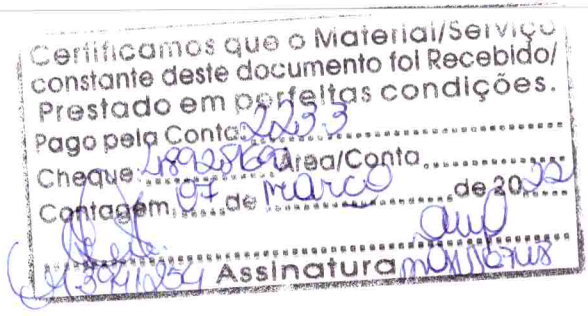 Certificamos que o Material/Serviço
constante deste documento foi Recebido/
Prestado em perfeitas condições.
Pago pela Conta: 223.3
Cheque: Área/Conta
Contagem, 07 de março de 2022
Assinatura